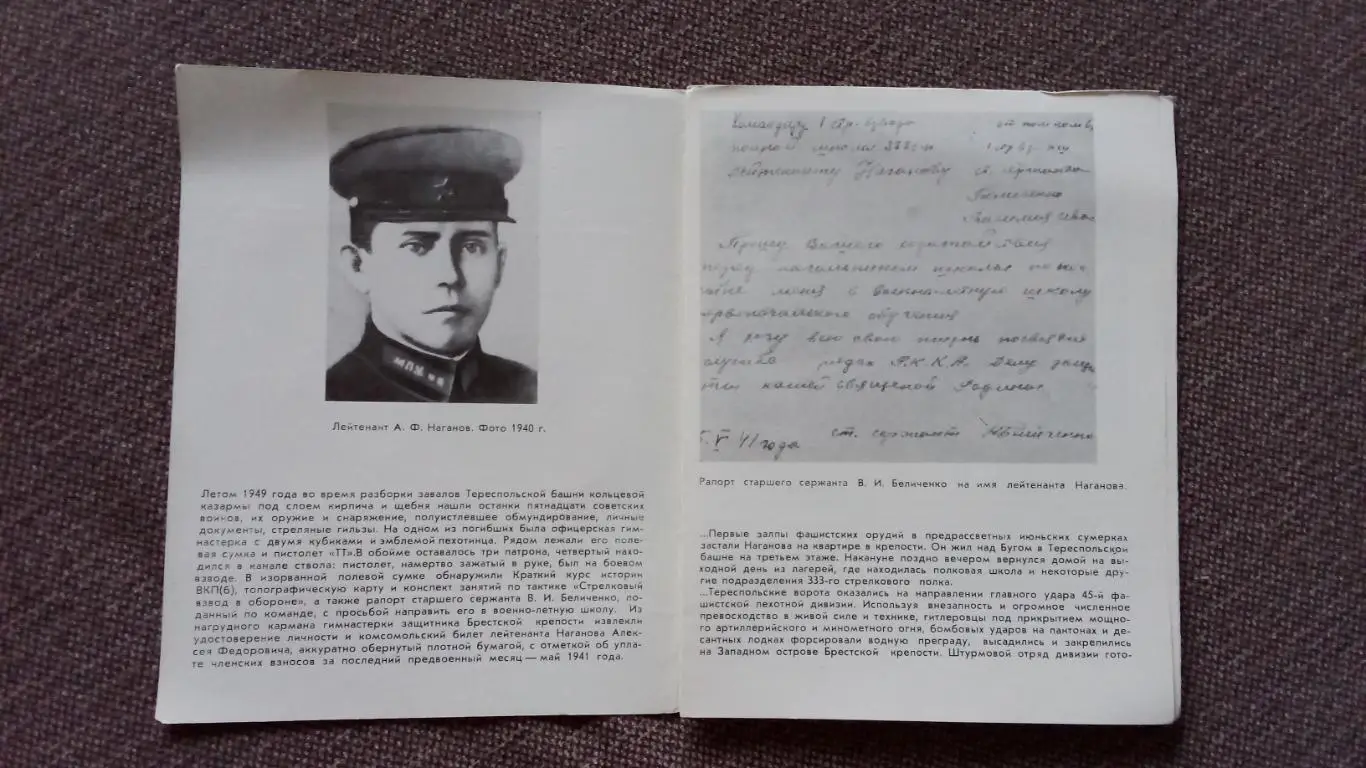 МПК
Лейтенант А. Ф. Наганов. Фото 1940 г.
Летом 1949 года во время разборки завалов Тереспольской башни кольцевой
казармы под слоем кирпича и щебня нашли останки пятнадцати советских
воинов, их оружие и снаряжение, полуистлевшее обмундирование, личные
документы, стреляные гильзы. На одном из погибших была офицерская гим-
настерка с двумя кубиками и эмблемой пехотинца. Рядом лежали его поле-
вая сумка и пистолет «ТТ».В обойме оставалось три патрона, четвертый нахо-
дился в канале ствола: пистолет, намертво зажатый в руке, был на боевом
взводе. В изорванной полевой сумке обнаружили Краткий курс истории
ВКП(б), топографическую карту и конспект занятий по тактике «Стрелковый
взвод в обороне», а также рапорт старшего сержанта В. И. Беличенко, по-
данный по команде, с просьбой направить его в военно-летную школу. Из
нагрудного кармана гимнастерки защитника Брестской крепости извлекли
удостоверение личности и комсомольский билет лейтенанта Наганова Алек-
сея Федоровича, аккуратно обернутый плотной бумагой, с отметкой об упла-
те членских взносов за последний предвоенный месяц — май 1941 года.
Командиру 1 стр. взвода
школы 333 сп
лейтенанту Наганову
Прошу Вашего
перед начальником школы
меня в военно-летную школу
обучения
Я хочу всю свою жизнь посвятить
службе рядах Р.К.К.А. Делу защи
ты нашей священной Родины.
V 41 года ст. сержант
Рапорт старшего сержанта В. И. Беличенко на имя лейтенанта Наганова.
...Первые залпы фашистских орудий в предрассветных июньских сумерках
застали Наганова на квартире в крепости. Он жил над Бугом в Тереспольской
башне на третьем этаже. Накануне поздно вечером вернулся домой на вы-
ходной день из лагерей, где находилась полковая школа и некоторые дру-
гие подразделения 333-го стрелкового полка.
...Тереспольские ворота оказались на направлении главного удара 45-й фа-
шистской пехотной дивизии. Используя внезапность и огромное численное
превосходство в живой силе и технике, гитлеровцы под прикрытием мощно-
го артиллерийского и минометного огня, бомбовых ударов на пактонах и де-
сантных лодках форсировали водную преграду, высадились и закрепились
на Западном острове Брестской крепости. Штурмовой отряд дивизии гото-